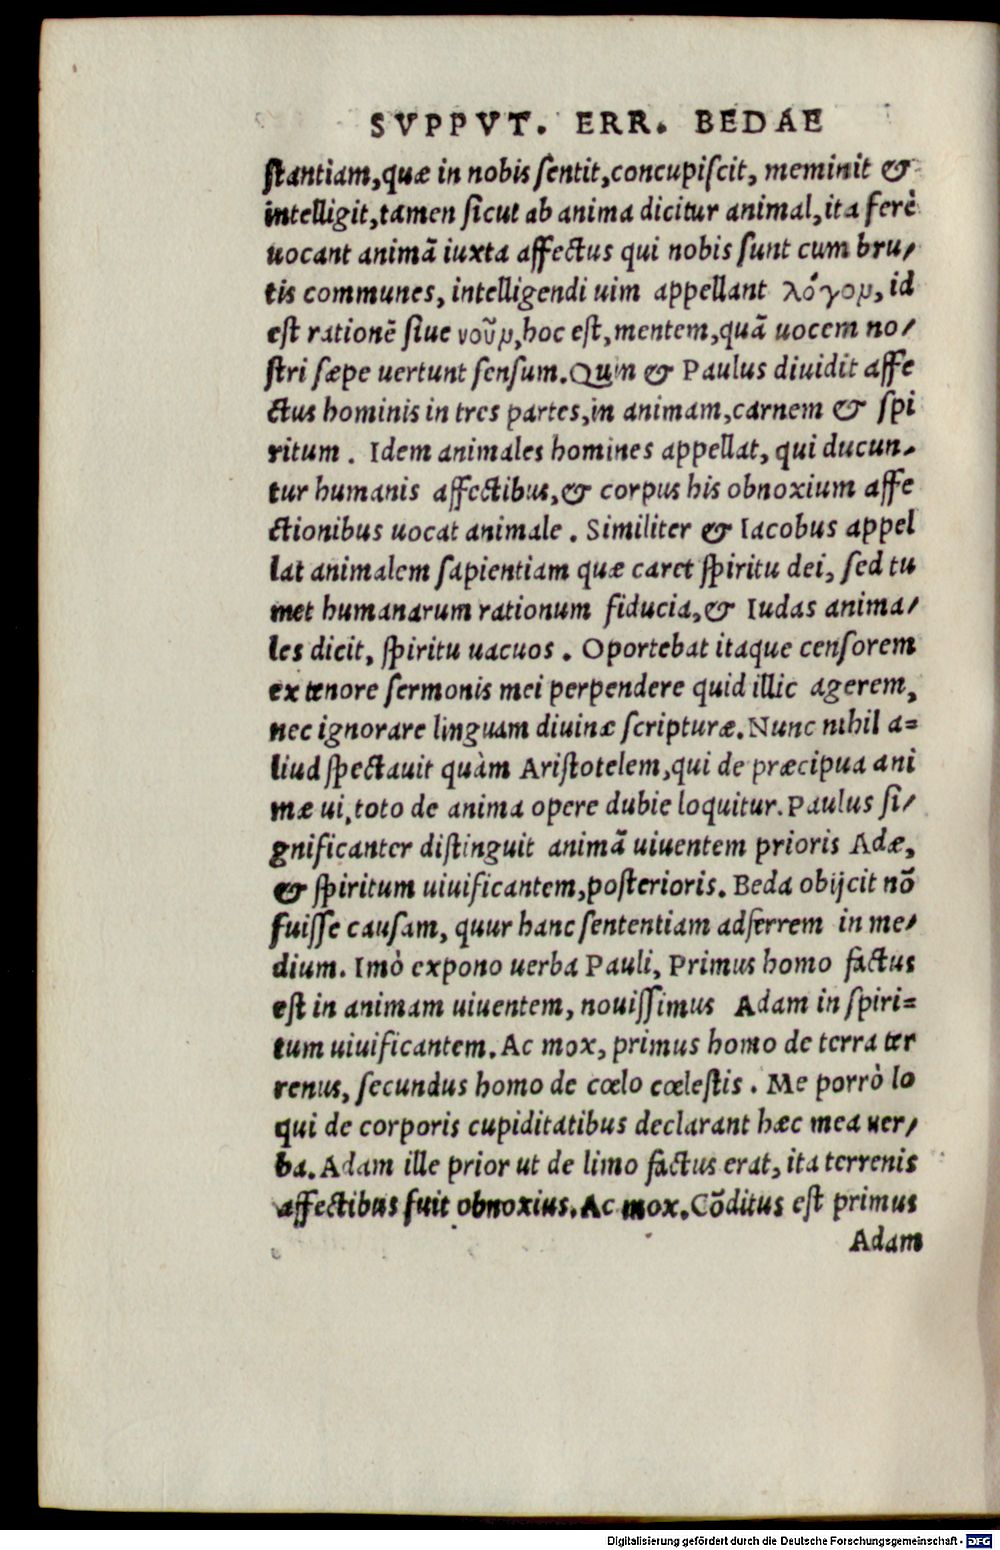 SVPPVT. ERR. BEDAE
ſtantiam, quæ in nobis ſentit, concupiſcit, meminit &
intelligit, tamen ſicut ab anima dicitur animal, ita ferè
uocant animã iuxta affectus qui nobis ſunt cum bru/
tis communes, intelligendi uim appellant λόγομ, id
eſt rationẽ ſiue νοῦμ, hoc eſt, mentem, quã uocem no/
ſtri ſæpe uertunt ſenſum. Quin & Paulus diuidit affe
ctus hominis in tres partes, in animam, carnem & ſpi
ritum . Idem animales homines appellat, qui ducun-
tur humanis affectibus, & corpus his obnoxium affe
ctionibus uocat animale . Similiter & Iacobus appel
lat animalem ſapientiam quæ caret ſpiritu dei, ſed tu
met humanarum rationum fiducia, & Iudas anima/
les dicit, ſpiritu uacuos . Oportebat itaque cenſorem
ex tenore ſermonis mei perpendere quid illic agerem,
nec ignorare linguam diuinæ ſcripturæ. Nunc nihil a=
liud ſpectauit quàm Ariſtotelem, qui de præcipua ani
mæ ui, toto de anima opere dubie loquitur. Paulus ſi/
gnificanter diſtinguit animã uiuentem prioris Adæ,
& ſpiritum uiuificantem, poſterioris. Beda obijcit nõ
fuiſſe cauſam, quur hanc ſententiam adferrem in me/
dium. Imò expono uerba Pauli, Primus homo factus
eſt in animam uiuentem, nouiſſimus Adam in ſpiri=
tum uiuificantem. Ac mox, primus homo de terra ter
renus, ſecundus homo de cœlo cœleſtis . Me porrò lo
qui de corporis cupiditatibus declarant hæc mea uer/
ba. Adam ille prior ut de limo factus erat, ita terrenis
affectibus fuit obnoxius. Ac mox. Cõditus eſt primus
Adam
Digitalisierung gefördert durch die Deutsche Forschungsgemeinschaft - DFG